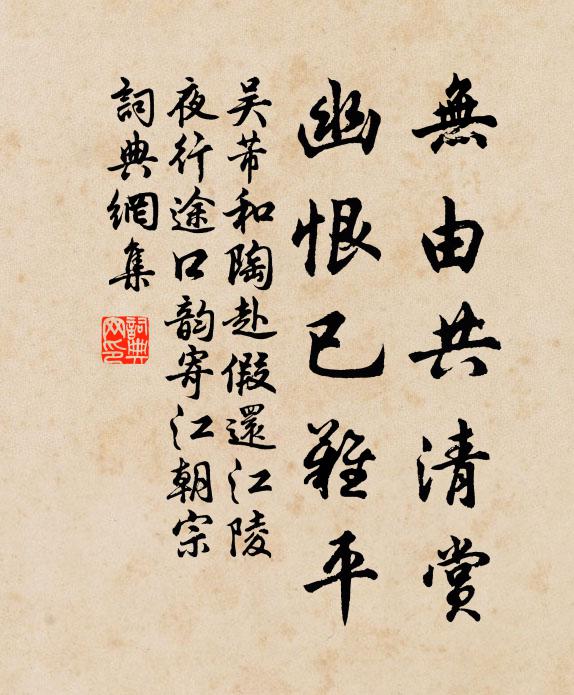 無由共清賞
幽恨已難平
吴芾和陶赴假還江陵
夜行途口韵寄江朝宗
詞典網集
詞典網印